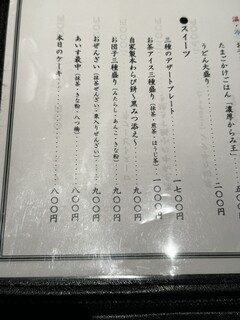 温・冷
たまごかけごはん「濃厚からみ玉」
うどん大盛り 二〇〇円
●スイーツ
三種のデザートプレート 一七〇〇円
お茶アイス三種盛り（抹茶・煎茶・ほうじ茶） 一〇〇〇円
自家製本わらび餅～黒みつ添え～ 九〇〇円
お団子三種盛り（みたらし・あんこ・きな粉） 九〇〇円
おぜんざい（抹茶ぜんざい・栗入りぜんざい） 九〇〇円
あいす最中（抹茶・きな粉・八つ橋） 八〇〇円
本日のケーキ 八〇〇円